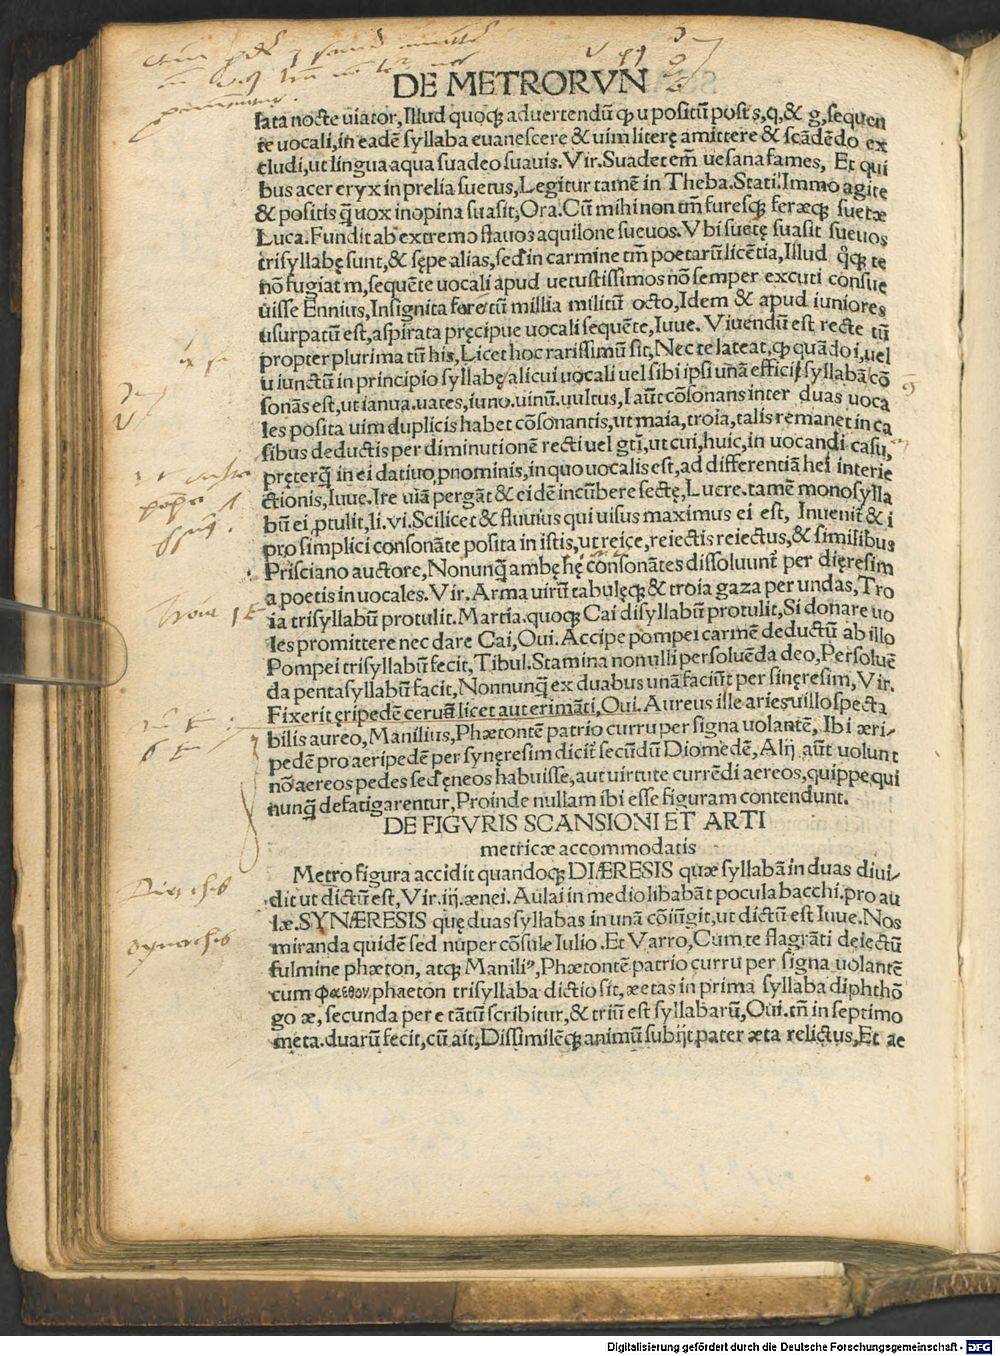 DE METRORVN
lata nocte uiator, Illud quoq; aduertendũ ꝙ u positũ post s, q, & g, sequen
te uocali, in eadē syllaba euanescere & uim literę amittere & scādēdo ex
cludi, ut lingua aqua suadeo suauis. Vir. Suadet em̄ uesana fames, Et qui
bus acer eryx in prelia suetus, Legitur tamē in Theba. Stati. Immo agite
& positis q̄ uox inopina suasit, Ora. Cũ mihi non tm̄ furesq; feræq; suetæ
Luca. Fundit ab extremo flauos aquilone sueuos. Vbi suetę suasit sueuos
trisyllabę sunt, & sępe alias, sed in carmine tm̄ poetarũ licētia, Illud qͦq; te
nō fugiat m, sequēte uocali apud uetustissimos nō semper excuti consue
uisse Ennius, Insignita fere tũ millia militũ octo, Idem & apud iuniores
usurpatũ est, aspirata pręcipue uocali sequēte, Iuue. Viuendũ est recte tũ
propter plurima tũ his, Licet hoc rarissimũ sit, Nec te lateat, ꝙ quādo i, uel
u iunctũ in principio syllabę alicui uocali uel sibi ipsi unā efficit syllabā cō
sonās est, ut ianua. uates, iuno. uinũ. uultus, I aũt cōsonans inter duas uoca
les posita uim duplicis habet cōsonantis, ut maia, troia, talis remanet in ca
sibus deductis per diminutionē recti uel gtī, ut cui, huic, in uocandi casu,
pręterq̄ in ei datiuo, pnominis, in quo uocalis est, ad differentiā hei interie
ctionis, Iuue. Ire uiā pergāt & eidē incũbere sectę, Lucre. tamē monosylla
bũ ei, ptulit, li. vi. Scilicet & fluuius qui uisus maximus ei est, Inuenit̄ & i
pro simplici consonāte posita in istis, ut reice, reiectis reiectus, & similibus
Prisciano auctore, Nonunq̄ ambę hę consonātes dissoluunt̄ per dięresim
a poetis in uocales. Vir. Arma uirũ tabulęq; & troia gaza per undas, Tro
ia trisyllabũ protulit. Martia. quoq; Cai disyllabũ protulit, Si donare uo
les promittere nec dare Cai, Oui. Accipe pompei carmē deductũ ab illo
Pompei trisyllabũ fecit, Tibul. Stamina non ulli persoluēda deo, Persoluē
da pentasyllabũ facit, Nonnunq̄ ex duabus unā faciũt per sinęresim, Vir.
Fixerit ęripedē ceruā licet aut erimāti, Oui. Aureus ille aries uillo specta
bilis aureo, Manilius, Phætontē patrio curru per signa uolantē, Ibi æri-
pedē pro aeripedē per syneresim dicit̄ secũdũ Diomedē, Alij aũt uolunt
nō aereos pedes sed ęneos habuisse, aut uirtute currēdi aereos, quippe qui
nunq̄ defatigarentur, Proinde nullam ibi esse figuram contendunt.
DE FIGVRIS SCANSIONI ET ARTI
metricæ accommodatis
Metro figura accidit quandoq; DIÆRESIS quæ syllabā in duas diui-
dit ut dictũ est, Vir. iij. ænei. Aulai in medio libabāt pocula bacchi. pro au
læ. SYNÆRESIS quę duas syllabas in unā cōiũgit, ut dictũ est Iuue. Nos
miranda quidē sed nuper cōsule Iulio. Et Varro, Cum te flagrāti deiectũ
fulmine phæton, atq; Maniliꝰ, Phætontē patrio curru per signa uolantē
cum φαεθου, phaeton trisyllaba dictio sit, æetas in prima syllaba diphthō
go æ, secunda per e tātũ scribitur, & triũ est syllabarũ, Oui. tñ in septimo
meta. duarũ fecit, cũ ait, Dissimilēq; animũ subijt pater æta relictus, Et ae
Digitalisierung gefördert durch die Deutsche Forschungsgemeinschaft - DFG